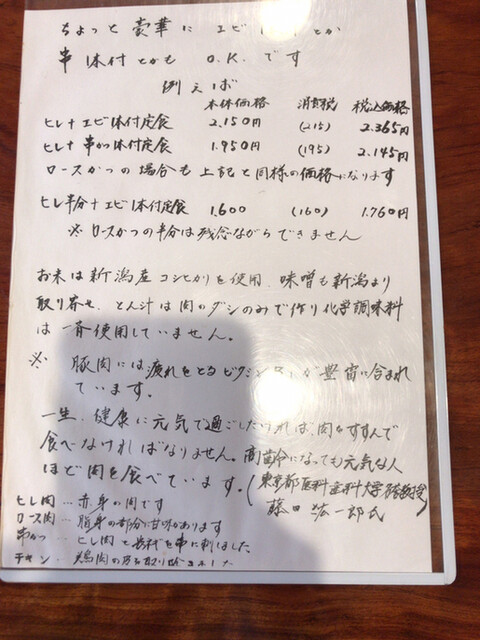 ちょっと豪華に エビ とか
串1本付とかも O.K.です
例えば
本体価格 消費税 税込価格
ヒレ+エビ1本付定食 2.150円 (215) 2.365円
ヒレ+串かつ1本付定食 1.950円 (195) 2.145円
ロースかつの場合も上記と同様の価格になります
ヒレ半分+エビ1本付定食 1.600 (160) 1.760円
※ロースかつの半分は残念ながらできません
お米は新潟産コシヒカリを使用、味噌も新潟より
取り寄せ、とん汁は肉のダシのみで作り化学調味料
は一斉使用していません。
※ 豚肉には疲れをとるビタミン が豊富に含まれ
ています。
一生、健康に元気で過ごしたければ、肉をすすんで
食べなければなりません。高齢になっても元気な人
ほど肉を食べています。(東京都医科歯科大学 教授
藤田紘一郎氏
ヒレ肉…赤身の肉です
ロース肉…脂身の部分に甘味があります
串かつ…ヒレ肉と長ネギを串に刺しました
チキン…鶏肉の 取り除きました